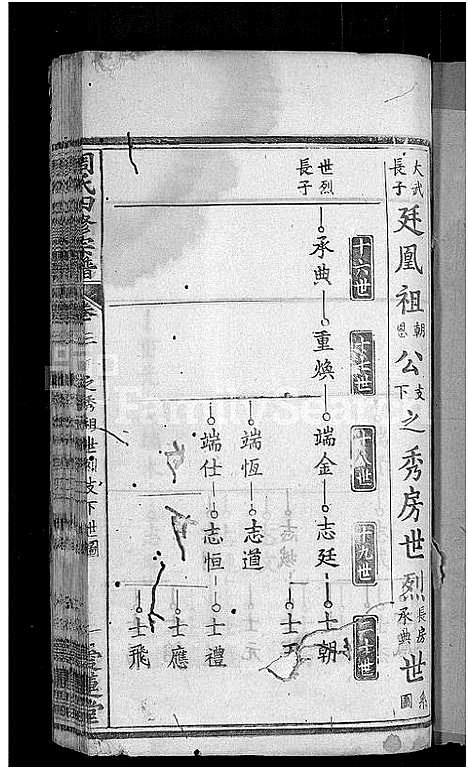 大武長子
廷鳳祖朝恩公支下之秀房世烈長房承典世系圖
十六世
十七世
十八世
十九世
二十世
世烈長子
承典
重煥
端金
志廷
士朝
端恆
志道
端仕
志恒
士禮
士應
士飛
周氏四修宗譜
卷二
之秀祖世烈支下世圖
愛蓮堂
FamilySearch